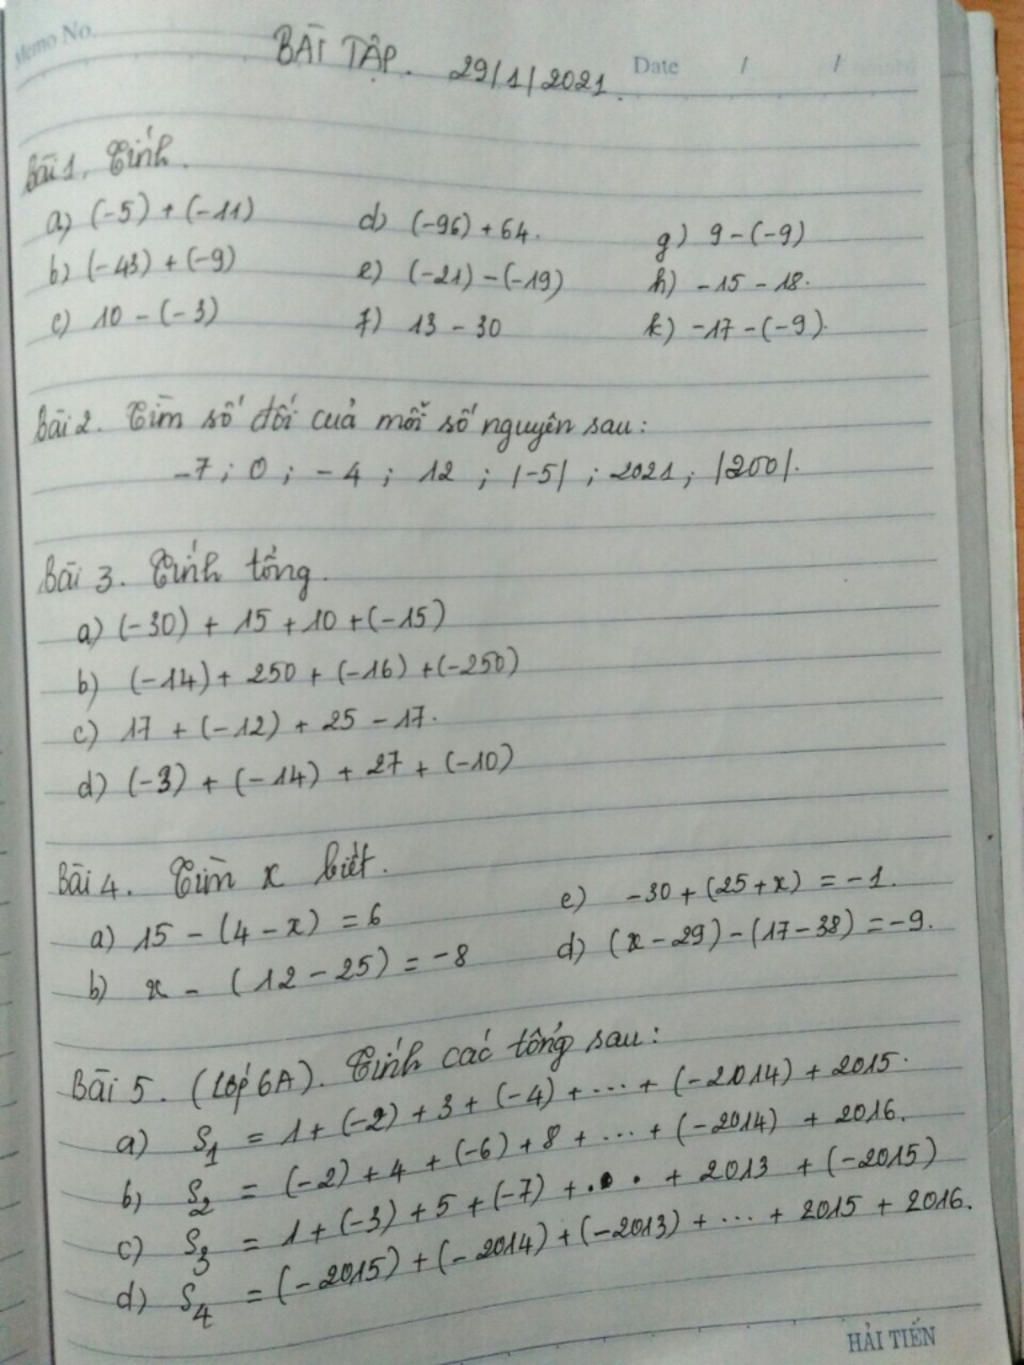 Memo No.
BÀI TẬP. 29/1/2021.
Date / /
Bài 1. Tính.
a) (-5) + (-11)
d) (-96) + 64.
g) 9 - (-9)
b) (-43) + (-9)
e) (-21) - (-19)
h) -15 - 18.
c) 10 - (-3)
f) 13 - 30
k) -17 - (-9).
Bài 2. Tìm số đối của mỗi số nguyên sau:
-7 ; 0 ; -4 ; 12 ; |-5| ; 2021 ; |200|.
Bài 3. Tính tổng.
a) (-30) + 15 + 10 + (-15)
b) (-14) + 250 + (-16) + (-250)
c) 17 + (-12) + 25 - 17.
d) (-3) + (-14) + 27 + (-10)
Bài 4. Tìm x biết.
a) 15 - (4 - x) = 6
c) -30 + (25 + x) = -1.
b) x - (12 - 25) = -8
d) (x - 29) - (17 - 38) = -9.
Bài 5. (Lớp 6A). Tính các tổng sau:
a) S₁ = 1 + (-2) + 3 + (-4) + ... + (-2014) + 2015.
b) S₂ = (-2) + 4 + (-6) + 8 + ... + (-2014) + 2016.
c) S₃ = 1 + (-3) + 5 + (-7) + ... + 2013 + (-2015)
d) S₄ = (-2015) + (-2014) + (-2013) + ... + 2015 + 2016.
HẢI TIẾN